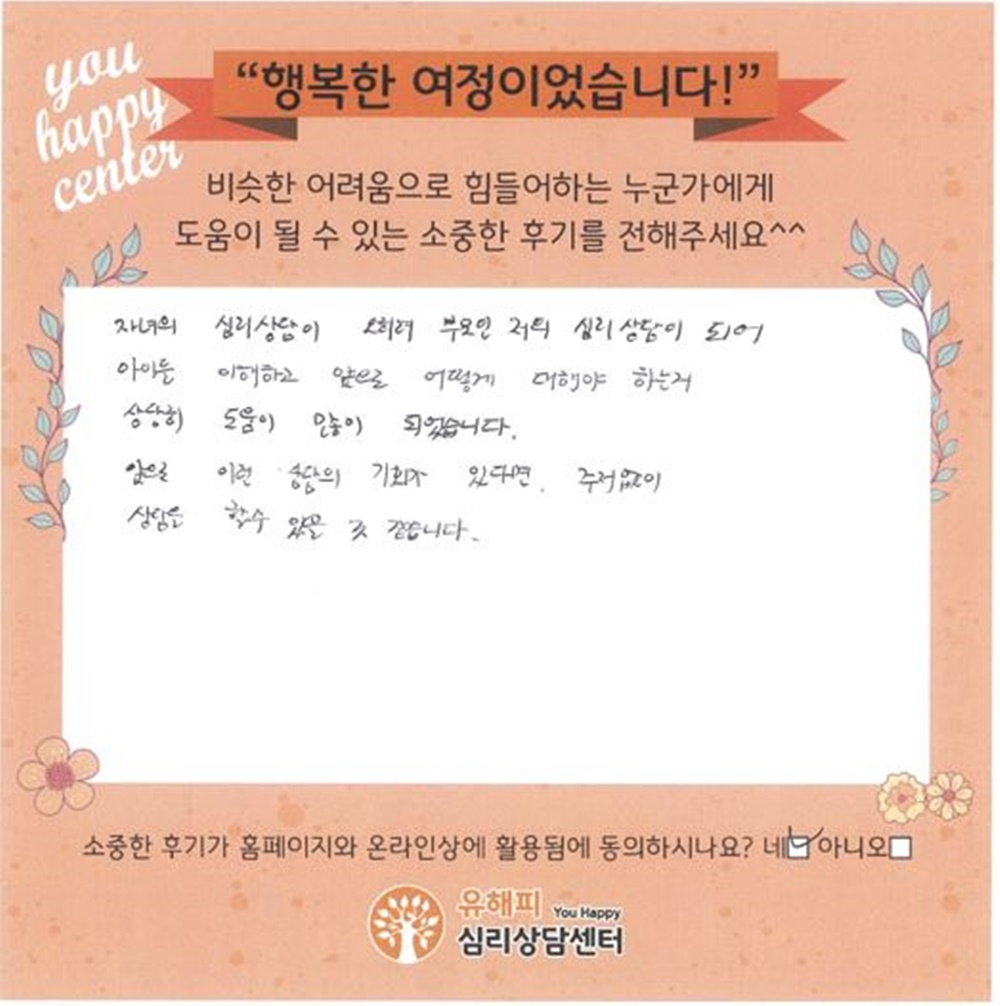 you
happy
center
“행복한 여정이었습니다!”
비슷한 어려움으로 힘들어하는 누군가에게
도움이 될 수 있는 소중한 후기를 전해주세요^^
자녀의 심리상담이 오히려 부모인 저의 심리상담이 되어
아이를 이해하고 앞으로 어떻게 대해야 하는지
상당히 도움이 많이 되었습니다.
앞으로 이런 상담의 기회가 있다면. 주저없이
상담을 할수 있을 것 같습니다.
소중한 후기가 홈페이지와 온라인상에 활용됨에 동의하시나요? 네 아니오
유해피 You Happy
심리상담센터